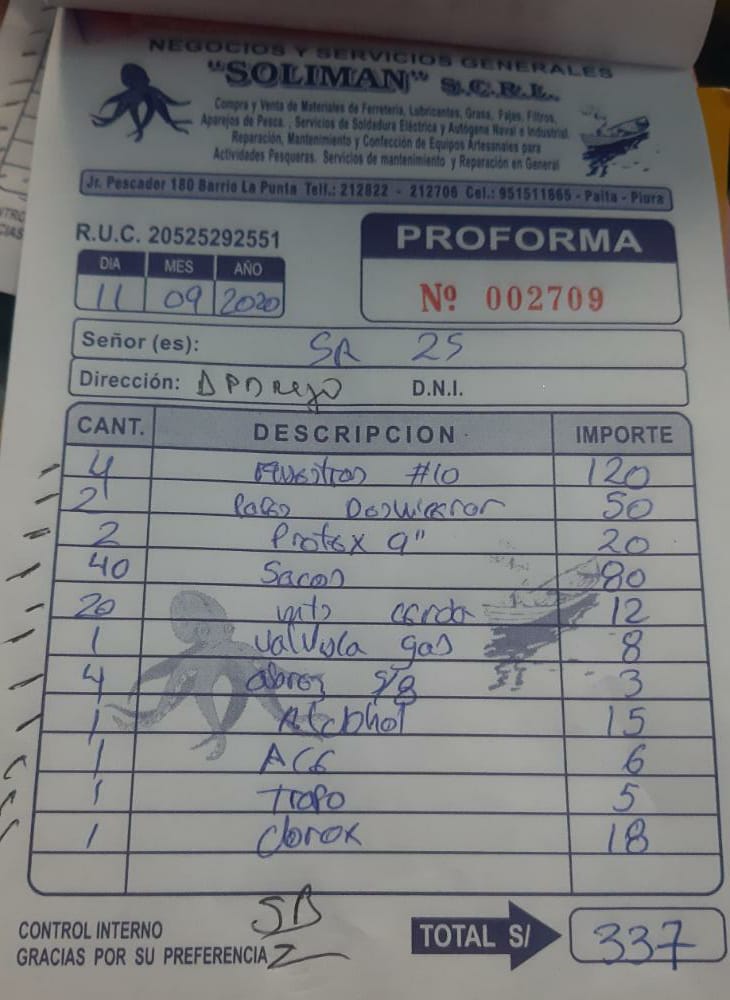 NEGOCIOS Y SERVICIOS GENERALES
"SOLIMAN" S.C.R.L.
Compra y Venta de Materiales de Ferreteria, Lubricantes, Grasa, Fajas, Filtros,
Aparejos de Pesca. , Servicios de Soldadura Eléctrica y Autógena Naval e Industrial.
Reparación, Mantenimiento y Confección de Equipos Artesanales para
Actividades Pesqueras. Servicios de mantenimiento y Reparación en General
Jr. Pescador 180 Barrio La Punta Telf.: 212822 - 212706 Cel.: 951511865 - Paita - Piura
R.U.C. 20525292551
PROFORMA
DIA MES AÑO
11 09 2020
Nº 002709
Señor (es): SR 25
Dirección: D.N.I.
CANT. DESCRIPCION IMPORTE
4 #10 120
2 50
2 Protex 9" 20
40 Sacos 80
20 mts 12
1 valvula gas 8
4 3
1 Alcohol 15
1 ACE 6
1 Trapo 5
1 Clorox 18
CONTROL INTERNO
GRACIAS POR SU PREFERENCIA
TOTAL S/ 337